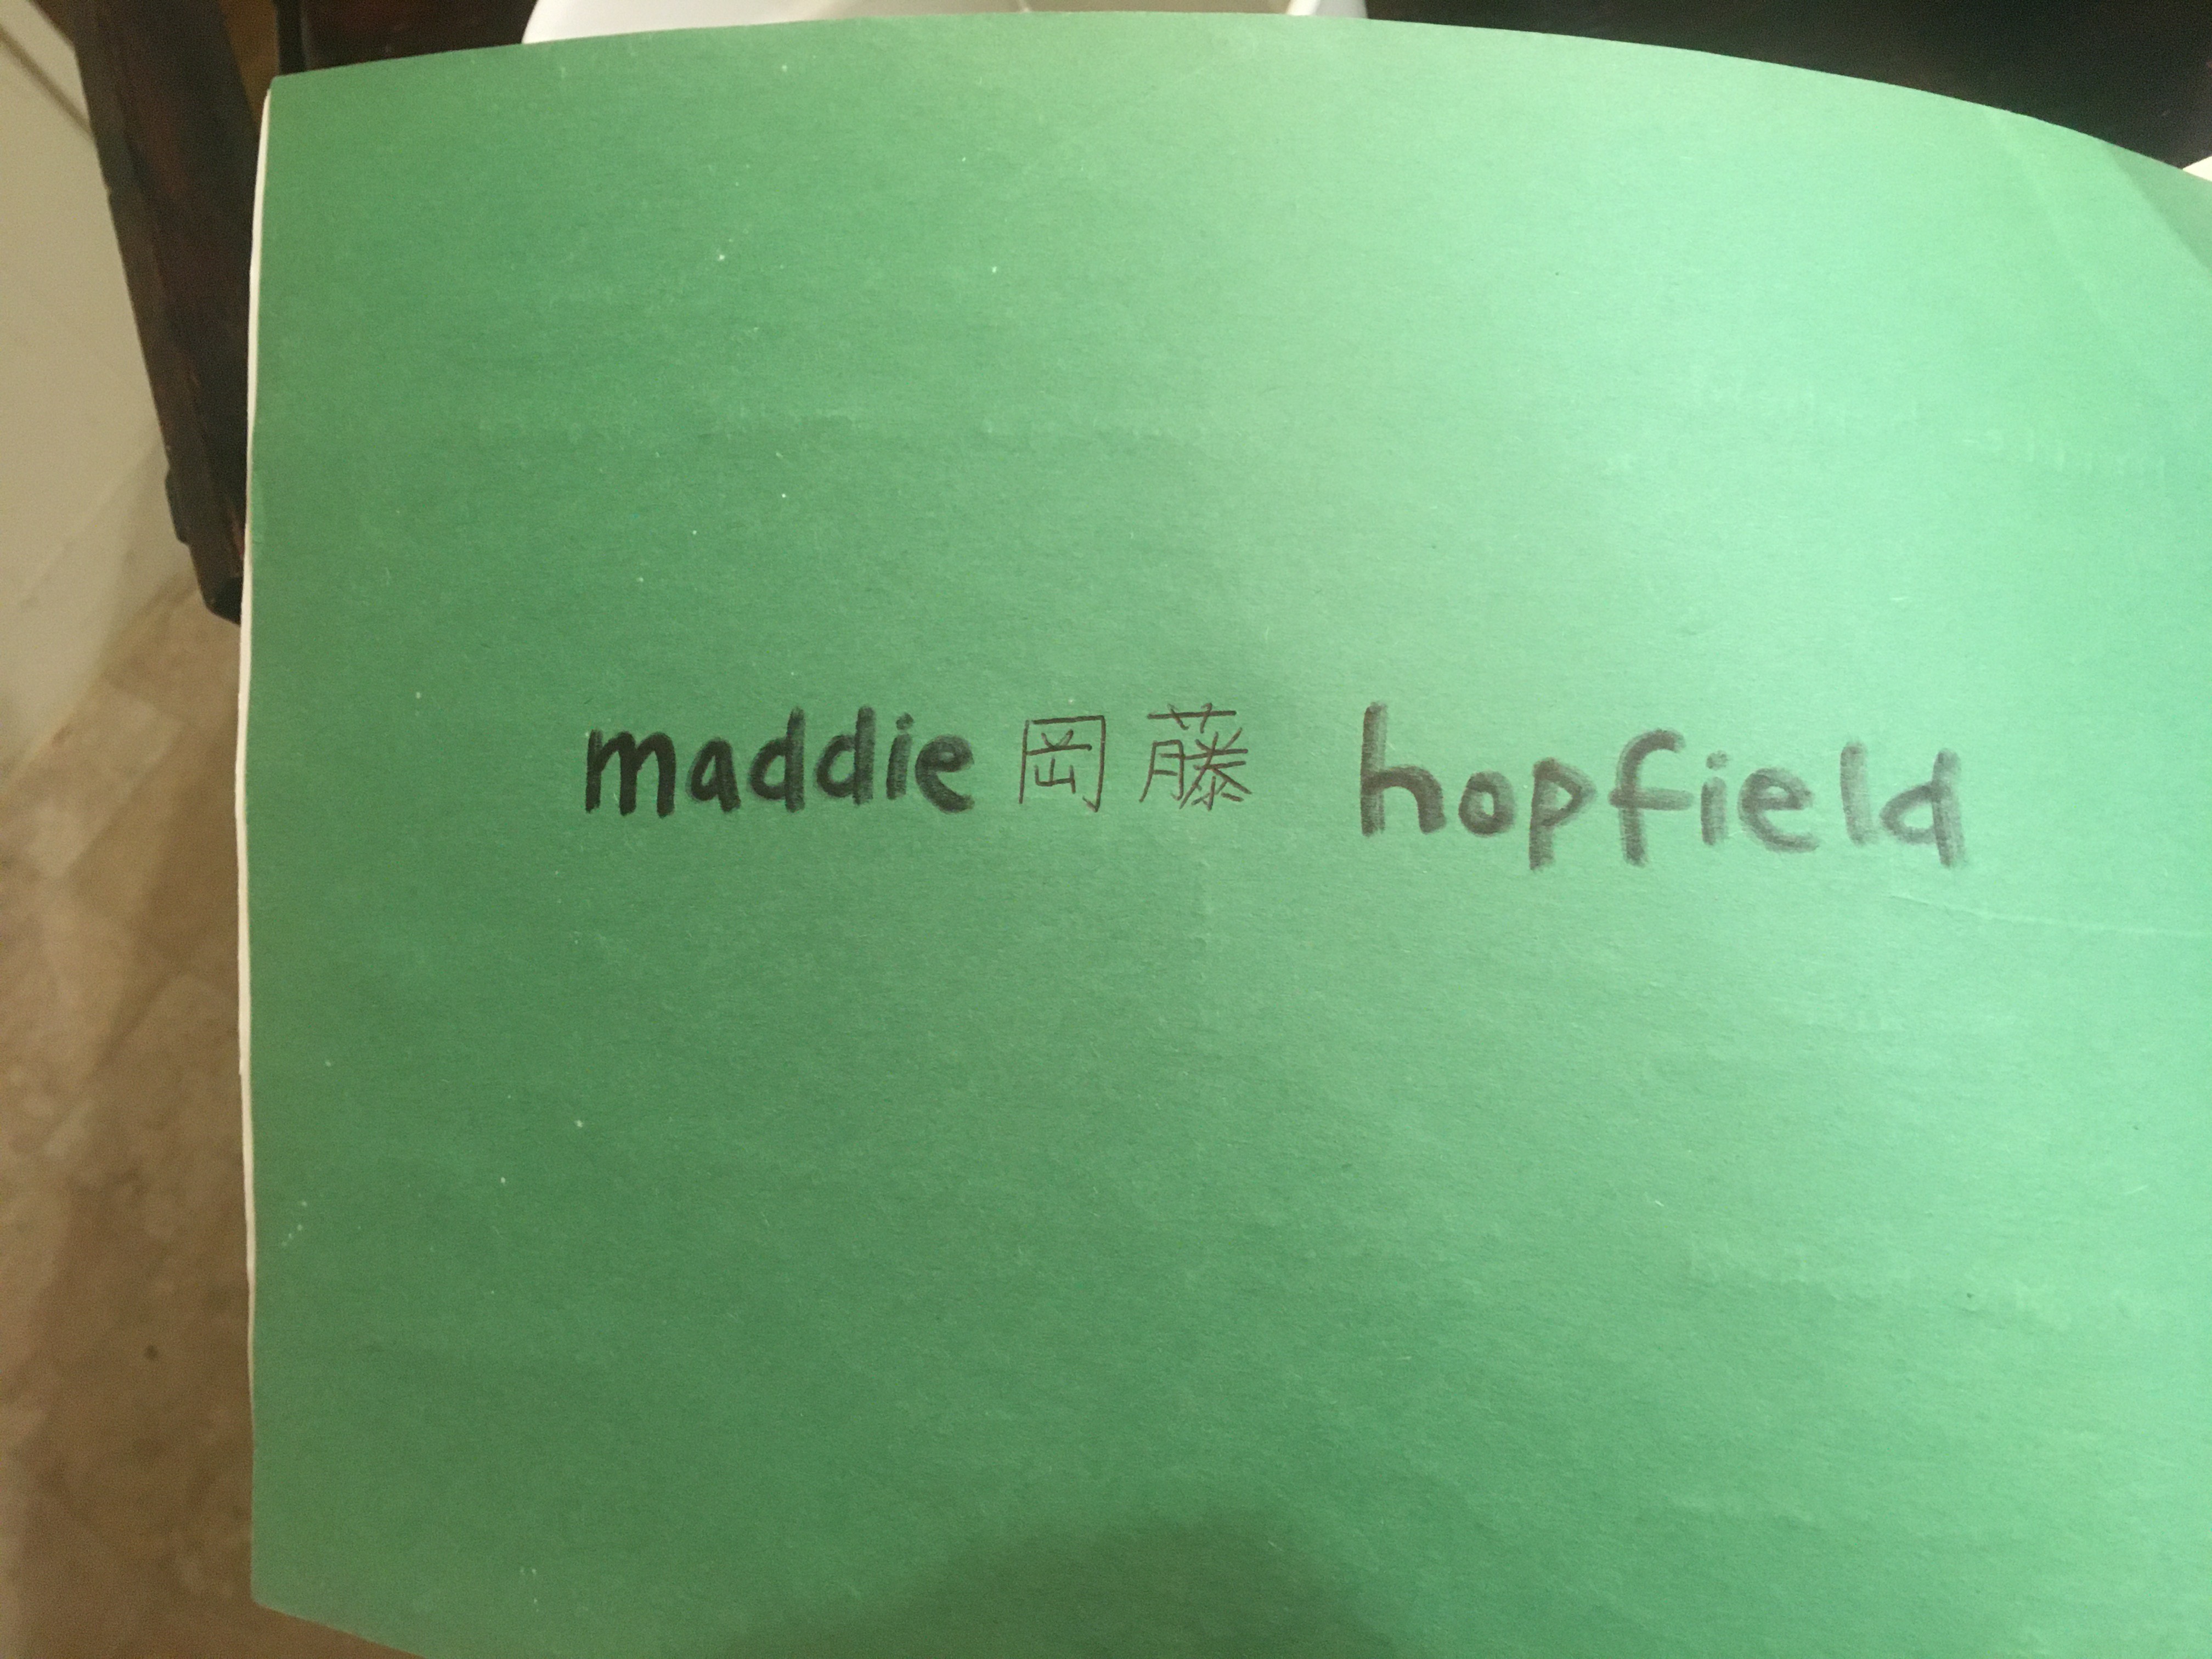 maddie 岡藤 hopfield